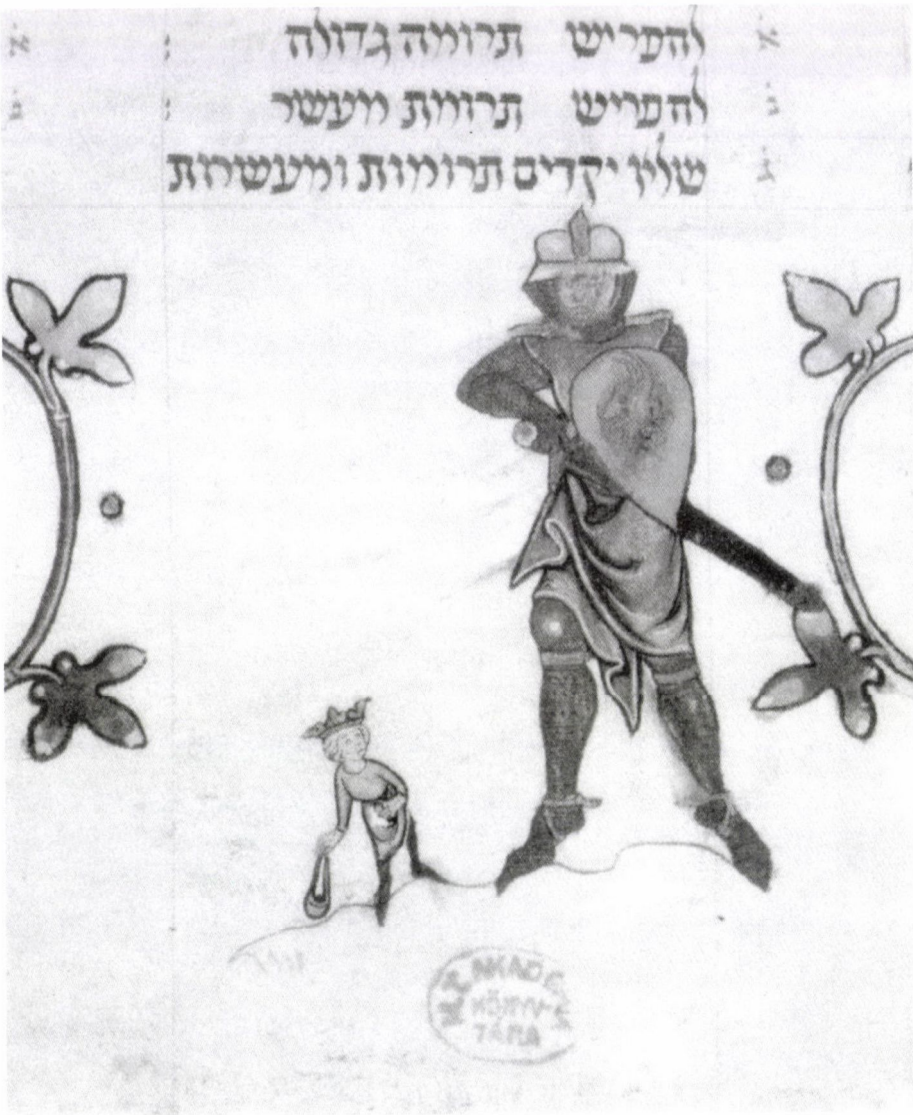 להפריש תרומה גדולה
להפריש תרומת מעשר
שלא יקדים תרומות ומעשרות
KÖNYV-
TÁRA